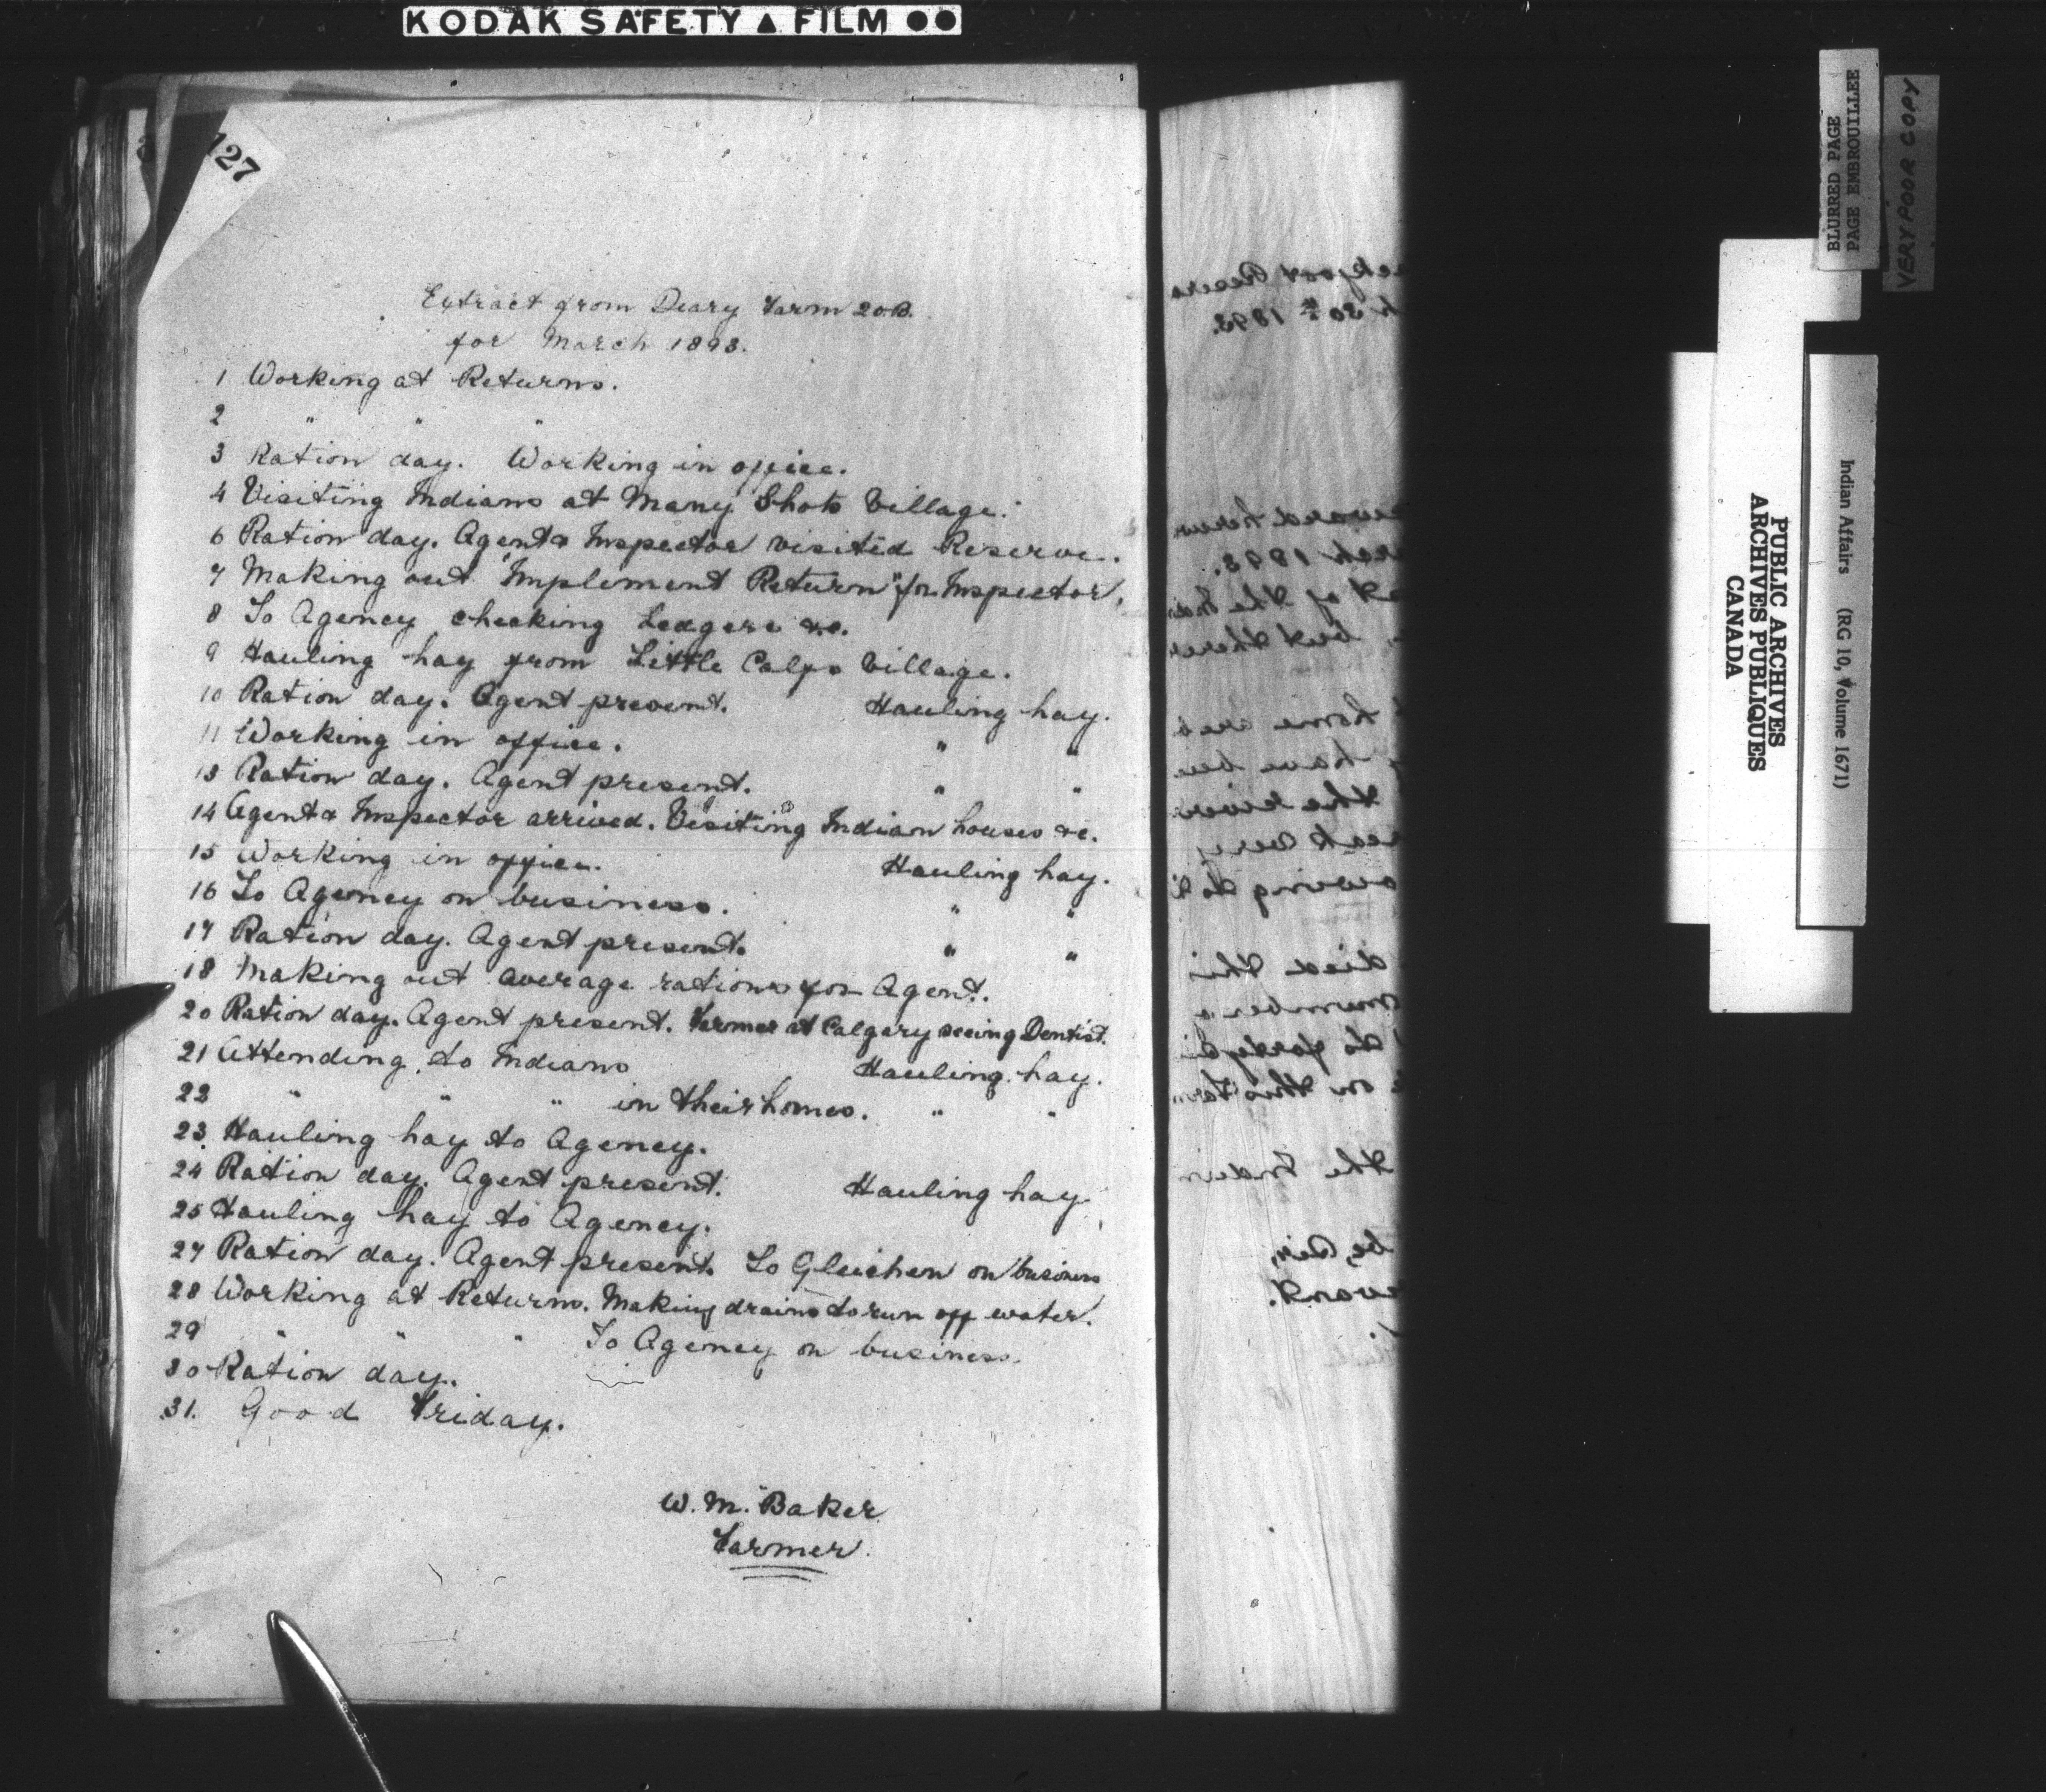 KODAK SAFETY ▲ FILM ●●
127
Extract from Diary Farm 20.B.
for March 1893.
1 Working at Returns.
2 " " "
3 Ration day. Working in office.
4 Visiting Indians at Many Shots Village.
6 Ration day. Agent & Inspector visited Reserve.
7 Making out "Implement Return" for Inspector.
8 To Agency checking Ledgers &c.
9 Hauling hay from Little Calfs Village.
10 Ration day. Agent present. Hauling hay.
11 Working in office. " "
13 Ration day. Agent present. " "
14 Agent & Inspector arrived. Visiting Indian houses &c.
15 Working in office. Hauling hay.
16 To Agency on business. " "
17 Ration day. Agent present. " "
18 Making out average rations for Agent.
20 Ration day. Agent present. Farmer at Calgary seeing Dentist.
21 Attending to Indians Hauling hay.
22 " " " in their homes. " "
23. Hauling hay to Agency.
24 Ration day. Agent present. Hauling hay.
25 Hauling hay to Agency.
27 Ration day. Agent present. To Gleichen on business
28 Working at Returns. Making drains to run off water.
29 " " " To Agency on business.
30 Ration day.
31. Good Friday.
W. M. Baker
Farmer.
BLURRED PAGE
PAGE EMBROUILLEE
VERY POOR COPY
PUBLIC ARCHIVES
ARCHIVES PUBLIQUES
CANADA
Indian Affairs (RG 10, Volume 1671)